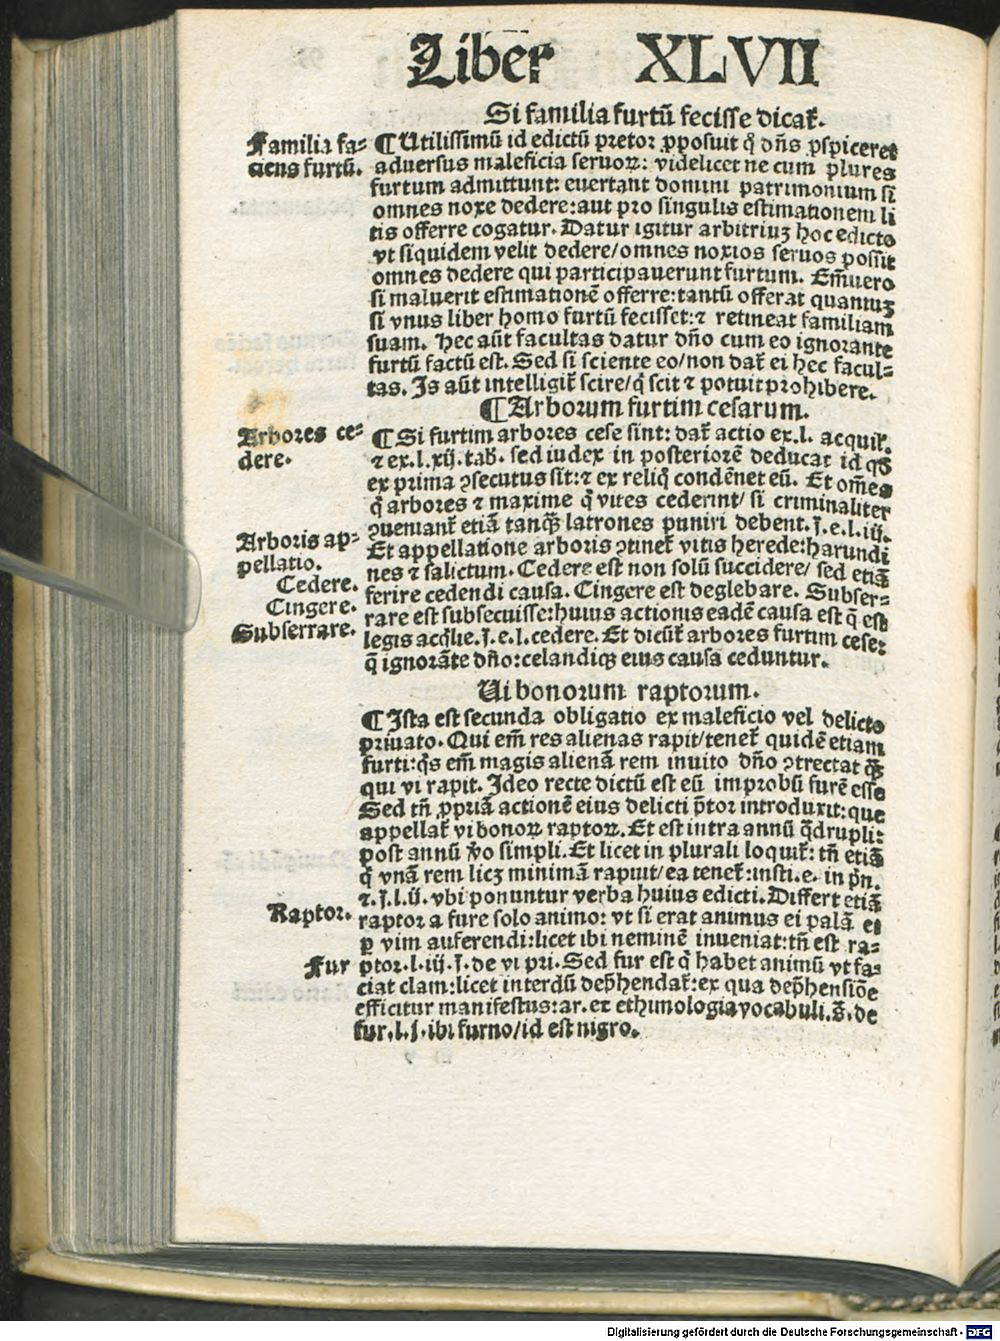 Liber XLVII
Si familia furtū fecisse dicaṫ.
Familia fa-
ciens furtū.
¶ Utilissimū id edictū pretor ꝓposuit q̇ dn̄s ꝓspiceret
aduersus maleficia seruoꝝ: videlicet ne cum plures
furtum admittunt: euertant domini patrimonium si
omnes noxe dedere: aut pro singulis estimationem li
tis offerre cogatur. Datur igitur arbitriuꝫ hoc edicto
vt siquidem velit dedere/omnes noxios seruos possit
omnes dedere qui participauerunt furtum. Em̄uero
si maluerit estimationē offerre: tantū offerat quantuꝫ
si vnus liber homo furtū fecisset: ⁊ retineat familiam
suam. Hec aūt facultas datur dn̄o cum eo ignorante
furtū factū est. Sed si sciente eo/non daṫ ei hec facul-
tas. Is aūt intelligiṫ scire/q̇ scit ⁊ potuit prohibere.
¶ Arborum furtim cesarum.
Arbores ce-
dere.
¶ Si furtim arbores cese sint: daṫ actio ex.l. acquil.
⁊ ex.l.xij.tab. sed iudex in posteriorē deducat id qḋ
ex prima ꝯsecutus sit: ⁊ ex reliq̇ condēnet eū. Et om̄es
q̇ arbores ⁊ maxime q̇ vites cederint/ si criminaliter
ꝯueniant̄ etiā tanq̄ꝫ latrones puniri debent.j.e.l.iij.
Arboris ap-
pellatio.
Cedere.
Cingere.
Subserrare.
Et appellatione arboris ꝯtineṫ vitis herede: harundi
nes ⁊ salictum. Cedere est non solū succidere/ sed etiā
ferire cedendi causa. Cingere est deglebare. Subser-
rare est subsecuisse: huius actionis eadē causa est q̄ est
legis acq̇lie.j.e.l.cedere. Et dicūt̄ arbores furtim cese:
q̄ ignorāte dn̄o: celandiqꝫ eius causa ceduntur.
Ui bonorum raptorum.
¶ Ista est secunda obligatio ex maleficio vel delicto
priuato. Qui em̄ res alienas rapit/teneṫ quidē etiam
furti: q̇s em̄ magis alienā rem inuito dn̄o ꝯtrectat q̄ꝫ
qui vi rapit. Ideo recte dictū est eū improbū furē esse
Sed tn̄ ꝓpriā actionē eius delicti p̄tor introduxit: que
appellaṫ vi bonoꝝ raptoꝝ. Et est intra annū q̄drupli:
post annū v̊o simpli. Et licet in plurali loquiṫ: tn̄ etiā
q̇ vnā rem licꝫ minimā rapuit/ea teneṫ: insti.e. in pn̄.
⁊.j.l.ij. vbi ponuntur verba huius edicti. Differt etiā
Raptor.
raptor a fure solo animo: vt si erat animus ei palā et
ꝑ vim auferendi: licet ibi neminē inueniat: tn̄ est ra-
Fur
ptor.l.iij.j.de vi pri. Sed fur est q̇ habet animū vt fa-
ciat clam: licet interdū dep̄hendaṫ: ex qua dep̄hensiōe
efficitur manifestus: ar. ex ethimologia vocabuli.s̄. de
fur.l.j.ibi furno/id est nigro.
Digitalisierung gefördert durch die Deutsche Forschungsgemeinschaft - DFG